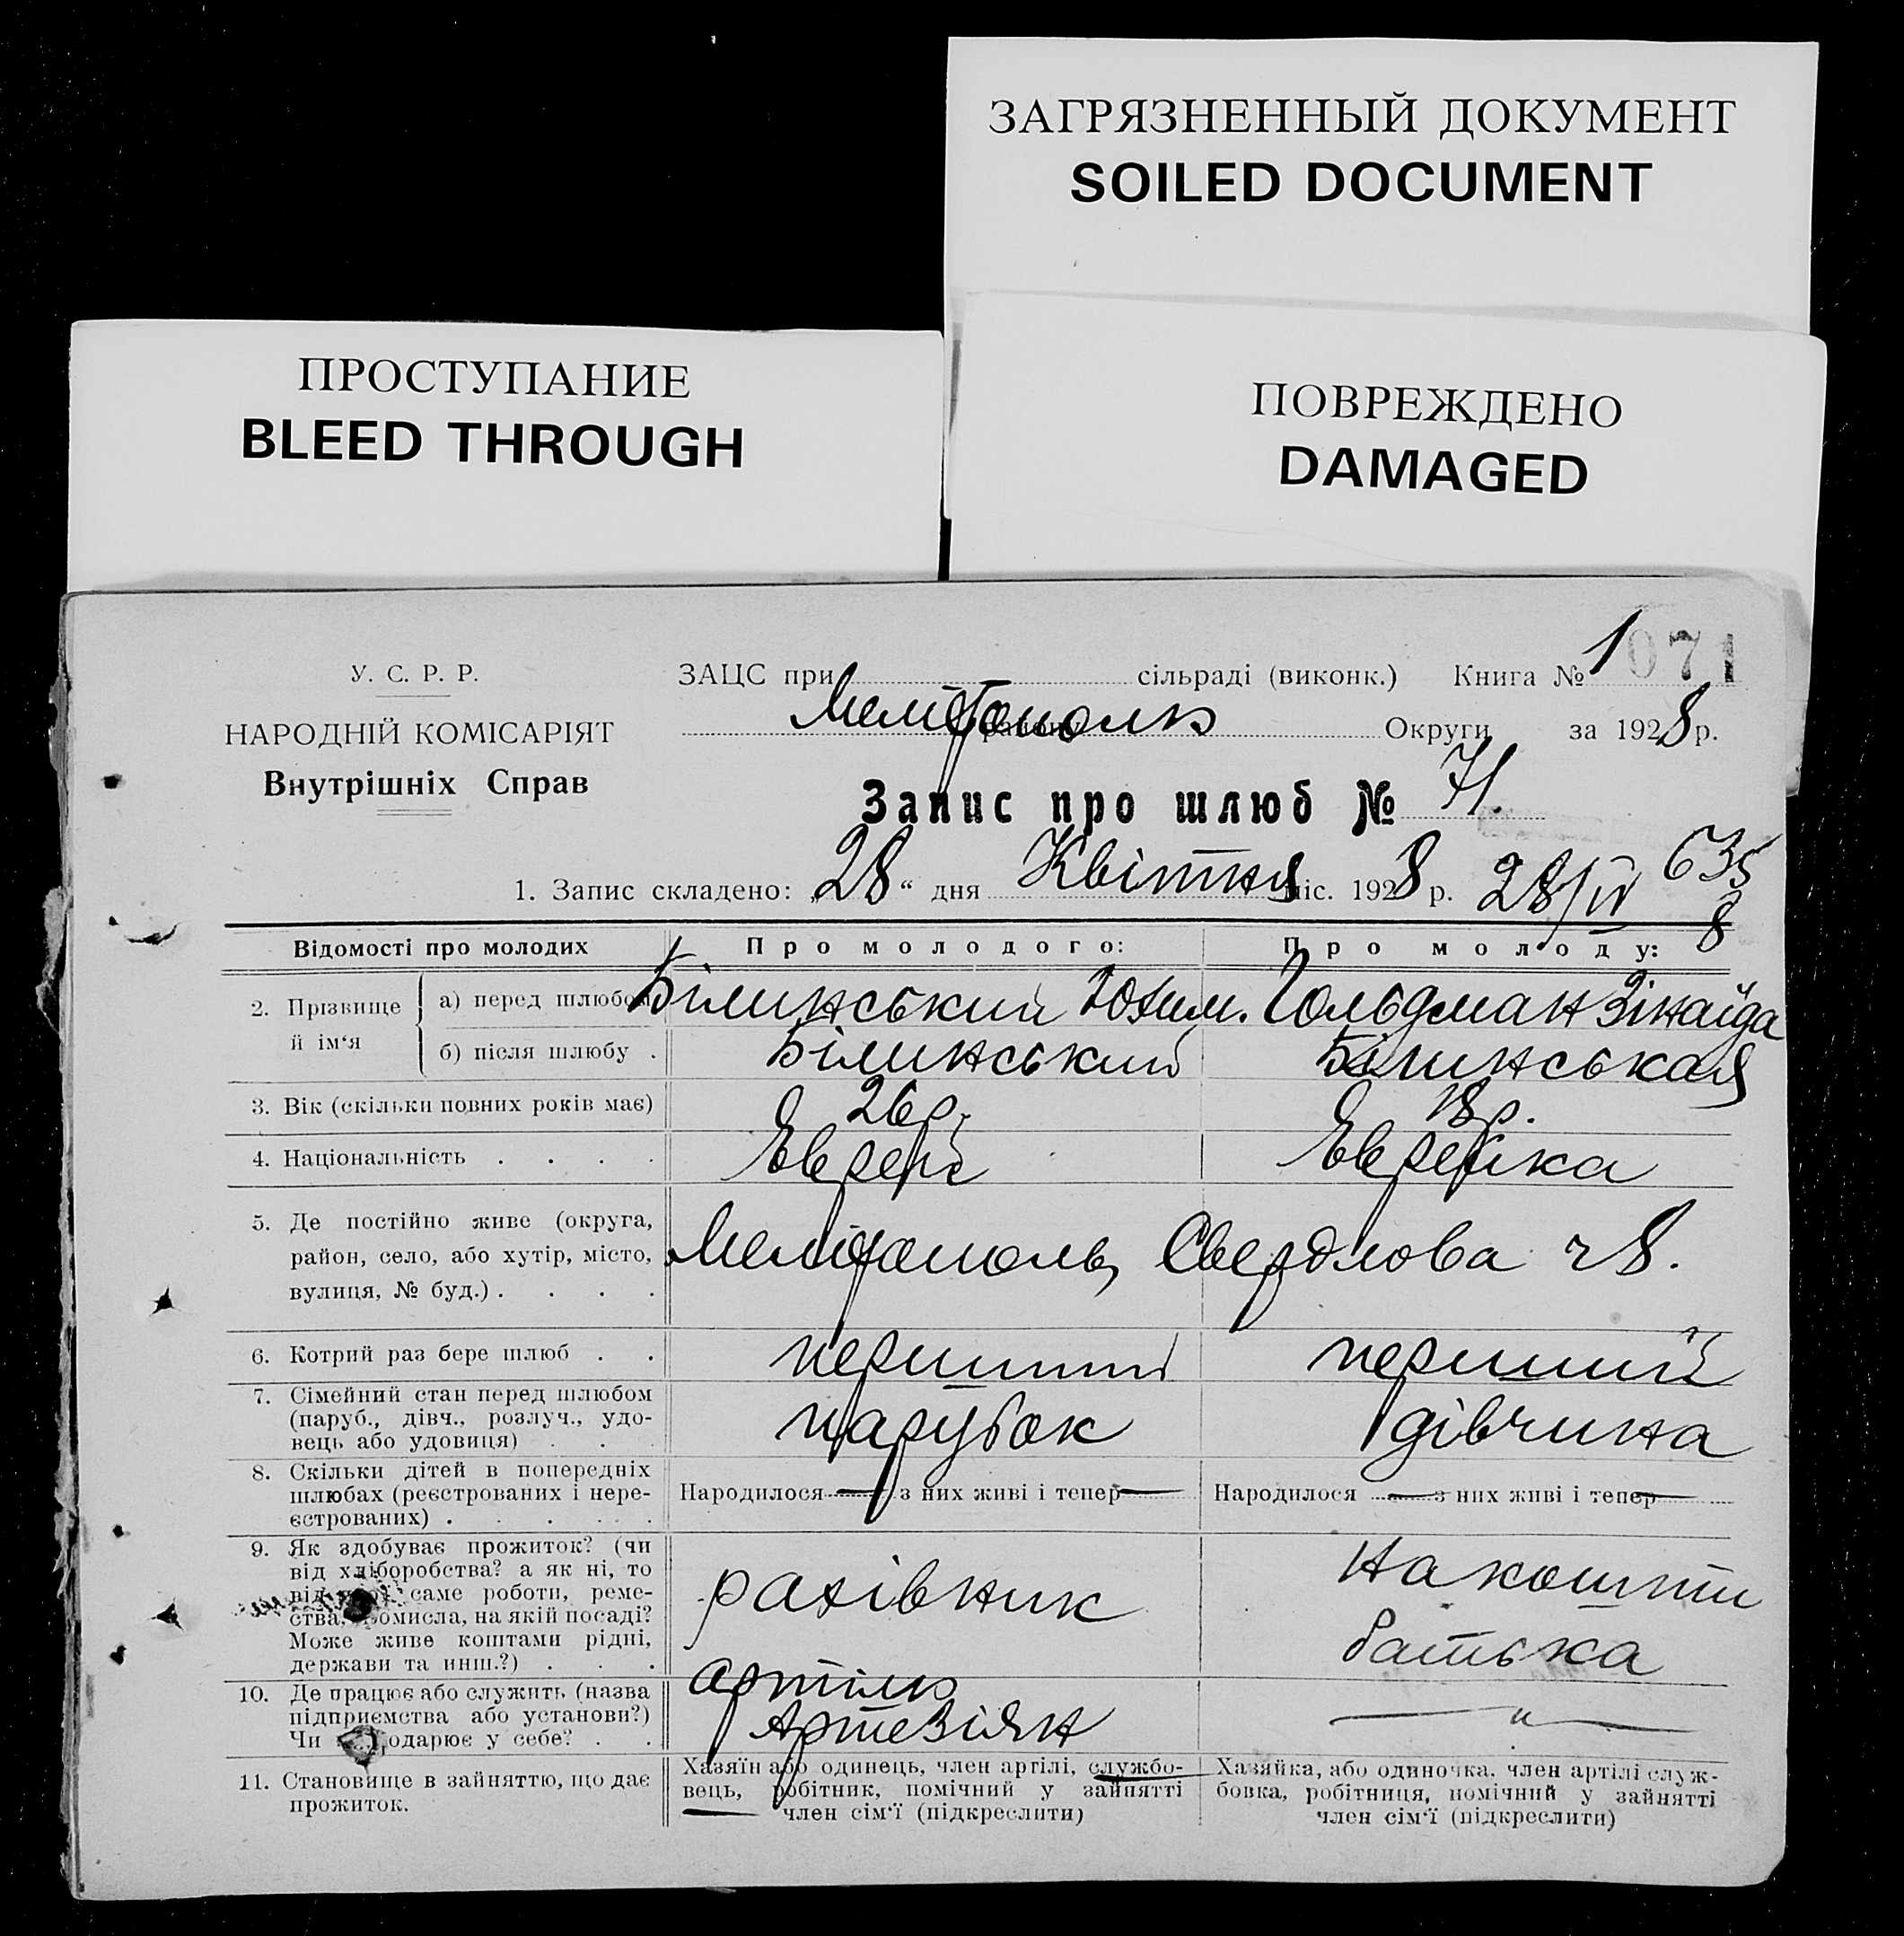 ЗАГРЯЗНЕННЫЙ ДОКУМЕНТ
SOILED DOCUMENT
ПРОСТУПАНИЕ
BLEED THROUGH
ПОВРЕЖДЕНО
DAMAGED
У. С. Р. Р.
НАРОДНІЙ КОМІСАРІЯТ
Внутрішніх Справ
ЗАЦС при сільраді (виконк.) Книга № 1 071
Мелітополь району Округи за 1928 р.
Запис про шлюб № 71.
1. Запис складено: „28“ дня Квітня міс. 1928 р. 28/IV 635
8
Відомості про молодих Про молодого: Про молоду:
2. Прізвище й ім‘я
а) перед шлюбом Білинський Юхим. Гольдман Зінаїда
б) після шлюбу . Білинський Білинськая
3. Вік (скільки повних років має) 26 р. 18 р.
4. Національність . . . . Еврей Еврейка
5. Де постійно живе (округа,
район, село, або хутір, місто,
вулиця, № буд.) . . . .
Мелітополь, Свердлова ч 8.
6. Котрий раз бере шлюб . . перший перший
7. Сімейний стан перед шлюбом
(паруб., дівч., розлуч., удо-
вець або удовиця) . .
парубок дівчина
8. Скільки дітей в попередніх
шлюбах (реєстрованих і нере-
єстрованих) . . . . .
Народилося — з них живі і тепер — Народилося — з них живі і тепер —
9. Як здобуває прожиток? (чи
від хліборобства? а як ні, то
від саме роботи, реме-
ства, промисла, на якій посаді?
Може живе коштами рідні,
держави та инш.?) . . .
рахівник
на кошти
батька
10. Де працює або служить (назва
підприємства або установи?)
Чи господарює у себе? . .
артіль
— " —
11. Становище в зайняттю, що дає
прожиток.
Хазяїн або одинець, член артілі, службо-
вець, робітник, помічний у зайнятті
член сім‘ї (підкреслити)
Хазяйка, або одиночка, член артілі служ-
бовка, робітниця, помічний у зайнятті
член сім‘ї (підкреслити)